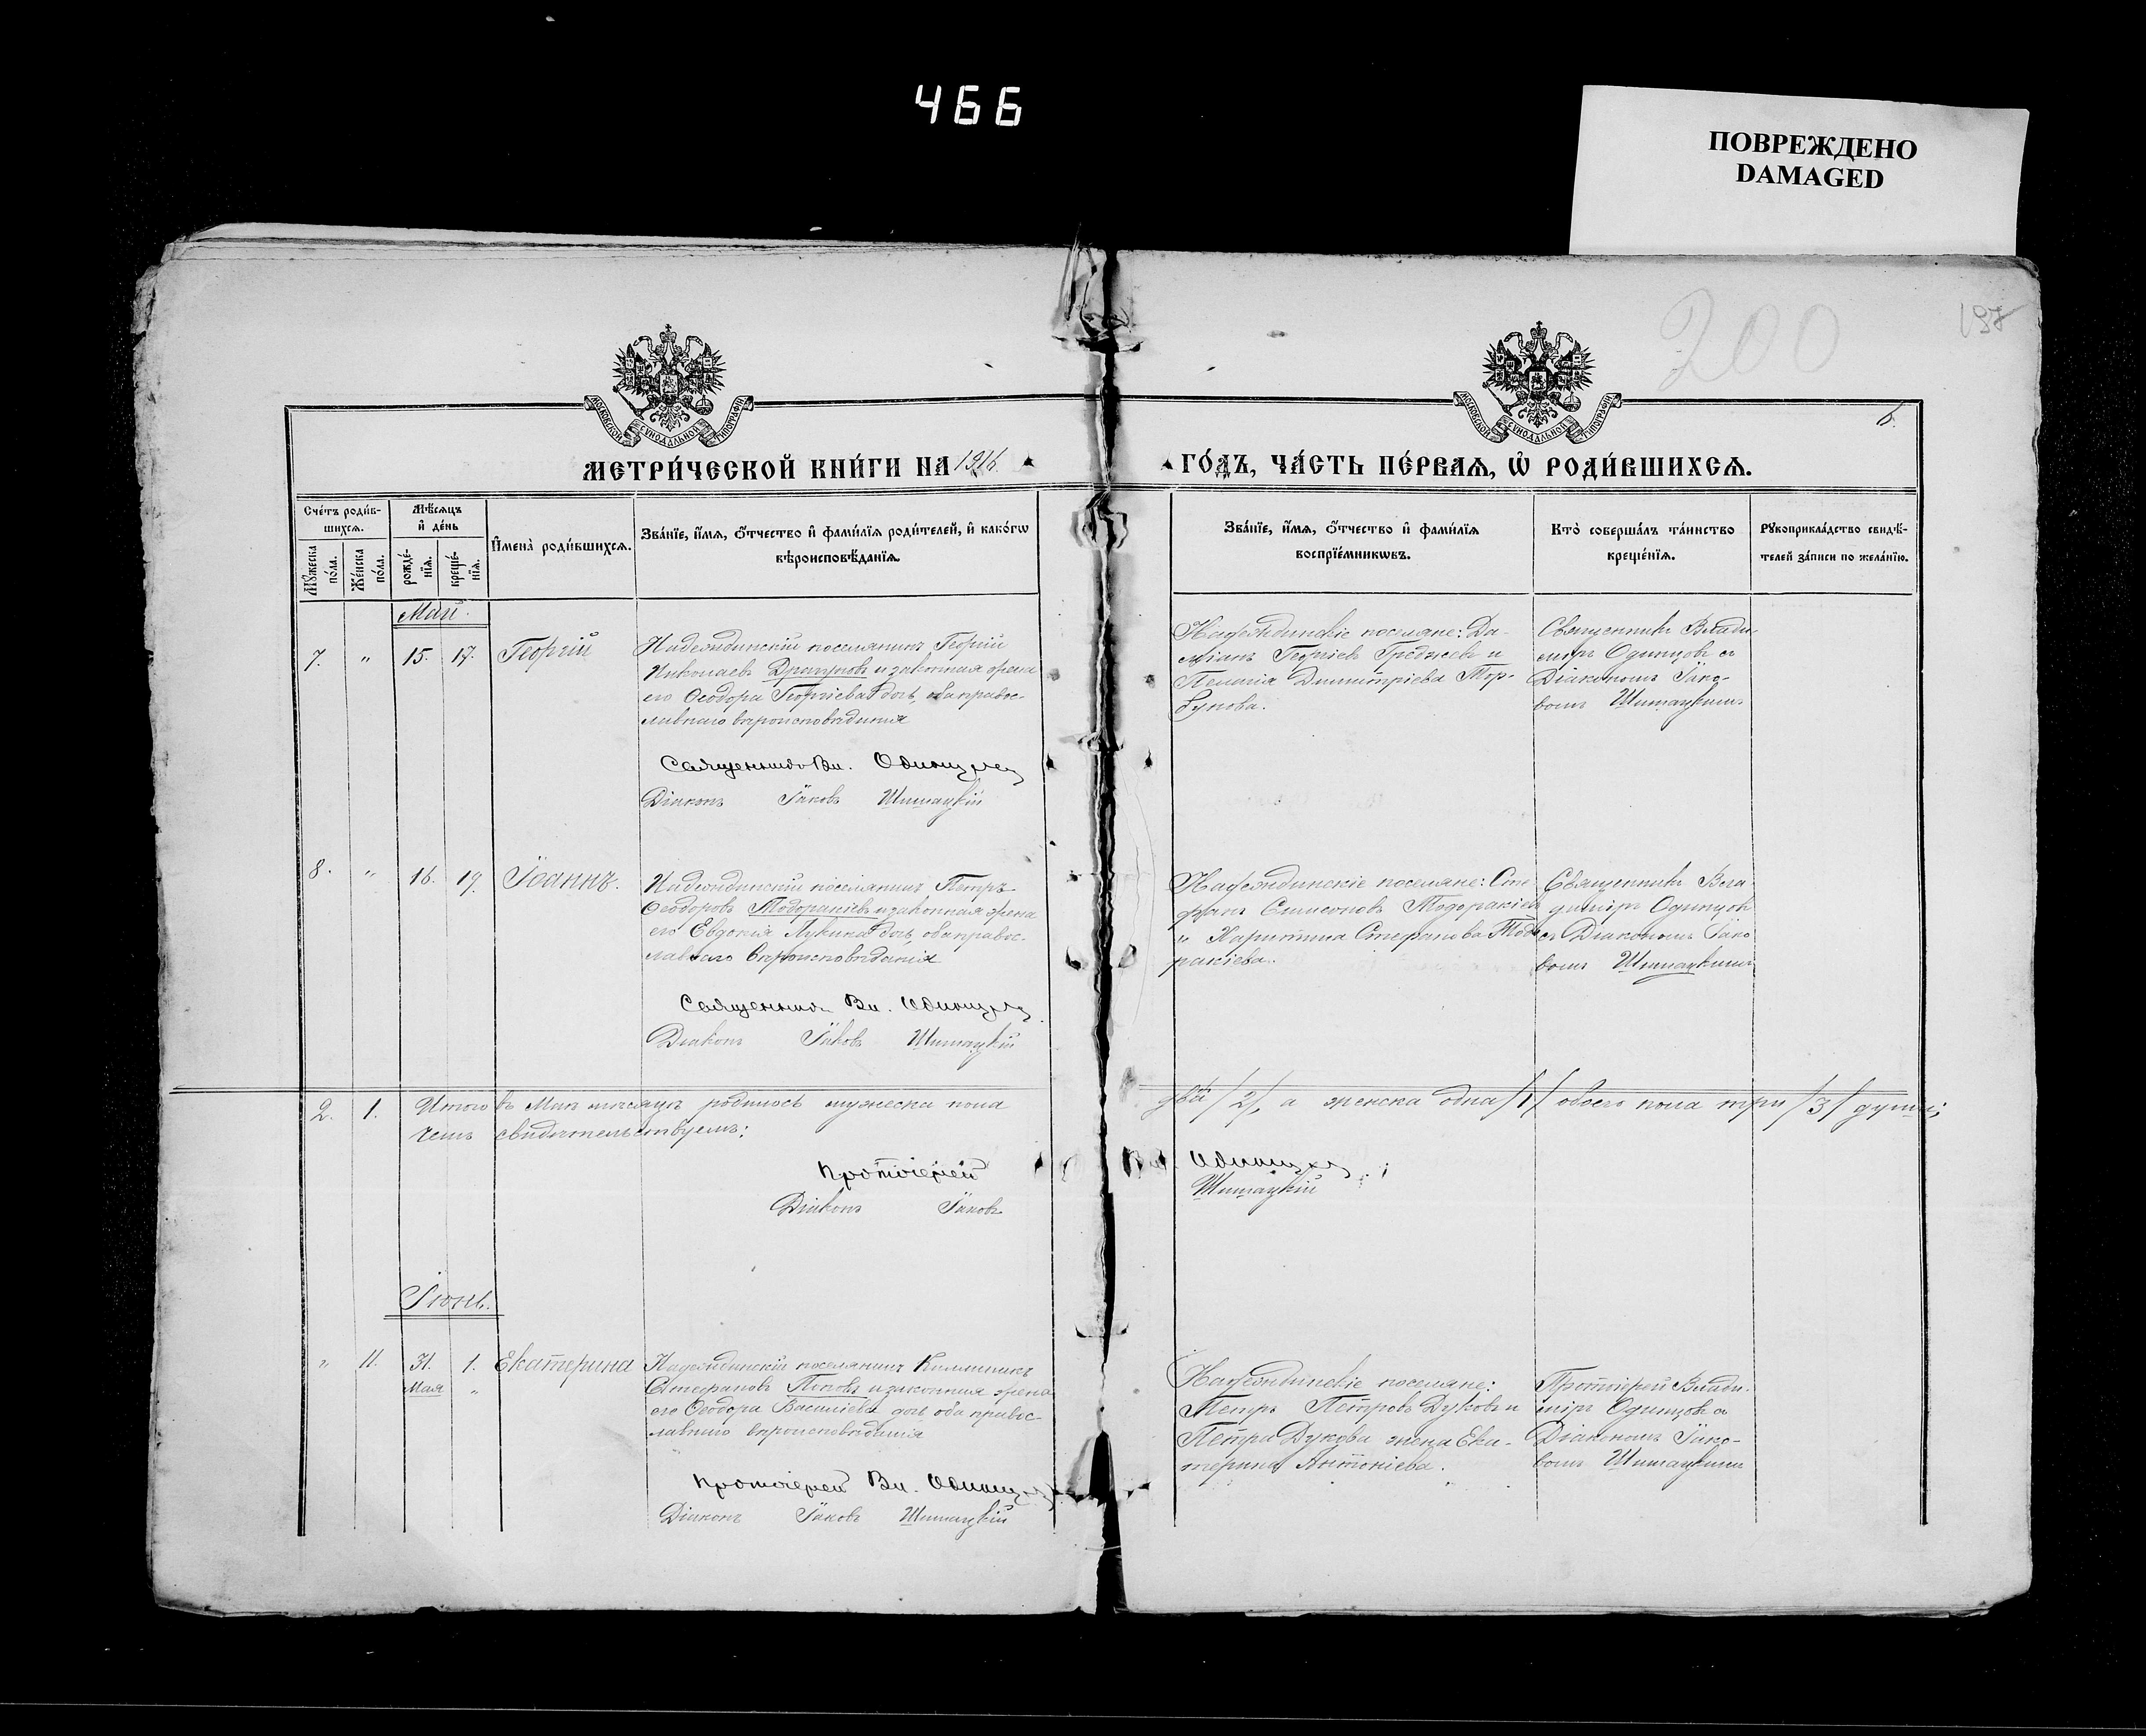 466
ПОВРЕЖДЕНО
DAMAGED
200
197
МОСКОВСКОЙ СѴНОДАЛЬНОЙ ТИПОГРАФІИ
МОСКОВСКОЙ СѴНОДАЛЬНОЙ ТИПОГРАФІИ
6.
МЕТРИ́ЧЕСКОЙ КНИ́ГИ НА 1916.
ГО́ДЪ, ЧА́СТЬ ПЕ́РВАЯ, Ѡ РОДИ́ВШИХСЯ.
Сче́тъ роди́в-
шихся.
Мꙋжеска по́ла.
Же́нска по́ла.
Мѣ́сяцъ
и҆ де́нь
рожде́-
нїя.
креще́-
нїя.
И҆мена̀ роди́вшихся.
Зва́нїе, и҆́мя, ѻ҆́тчество и҆ фами́лїя роди́телей, и҆ како́гѡ
вѣроисповѣ́данїя.
Зва́нїе, и҆́мя, ѻ҆́тчество и҆ фами́лїя
воспрїе́мникѡвъ.
Кто̀ соверша́лъ та́инство
креще́нїя.
Рꙋкоприкла́дство свидѣ́-
телей за́писи по жела́нїю.
Май.
7. " 15. 17. Георгій
Надеждинскій поселянинъ Георгій
Николаевъ Драгуновъ и законная жена
его Ѳеодора Георгіева дочь, оба правос-
лавнаго вѣроисповѣданія
Священникъ Вл. Одинцовъ
Діаконъ Іаковъ Шишацкій
Надеждинскіе поселяне: Да-
міанъ Георгіевъ Греджевъ и
Пелагія Димитріева Тор-
Священникъ Влади-
міръ Одинцовъ съ
Діакономъ Іако-
вомъ Шишацкимъ
8. " 16. 19. Іоаннъ.
Надеждинскій поселянинъ Петръ
Ѳеодоровъ Тодоракіевъ и законная жена
его Евдокія Лукина дочь, оба правос-
лавнаго вѣроисповѣданія
Священникъ Вл. Одинцовъ
Діаконъ Іаковъ Шишацкій
Надеждинскіе поселяне: Сте
фанъ Симеоновъ Тодоракіевъ
" Харитина Стефанова Тодо
ракіева.
Священникъ Вла
диміръ Одинцовъ
съ Діакономъ Іако
вомъ Шишацкимъ
2. 1. Итого въ Маѣ мѣсяцѣ родилось мужеска пола
два /2/, а женска одна /1/ обоего пола три /3/ души;
чемъ свидѣтельствуемъ:
Протоіерей Вл. Одинцовъ
Діаконъ Іаковъ Шишацкій
Іюнь.
" 11. 31. 1. Екатерина
Мая "
Надеждинскій поселянинъ
Стефановъ Поповъ и законная жена
его Ѳеодора Васильева дочь, оба правос-
лавнаго вѣроисповѣданія
Протоіерей Вл. Одинцовъ
Діаконъ Іаковъ Шишацкій
Надеждинскіе поселяне:
Петръ Петровъ Дуковъ и
Петра Дукова жена Ека-
терина Антоніева.
Протоіерей Влади-
міръ Одинцовъ съ
Діакономъ Іако-
вомъ Шишацкимъ